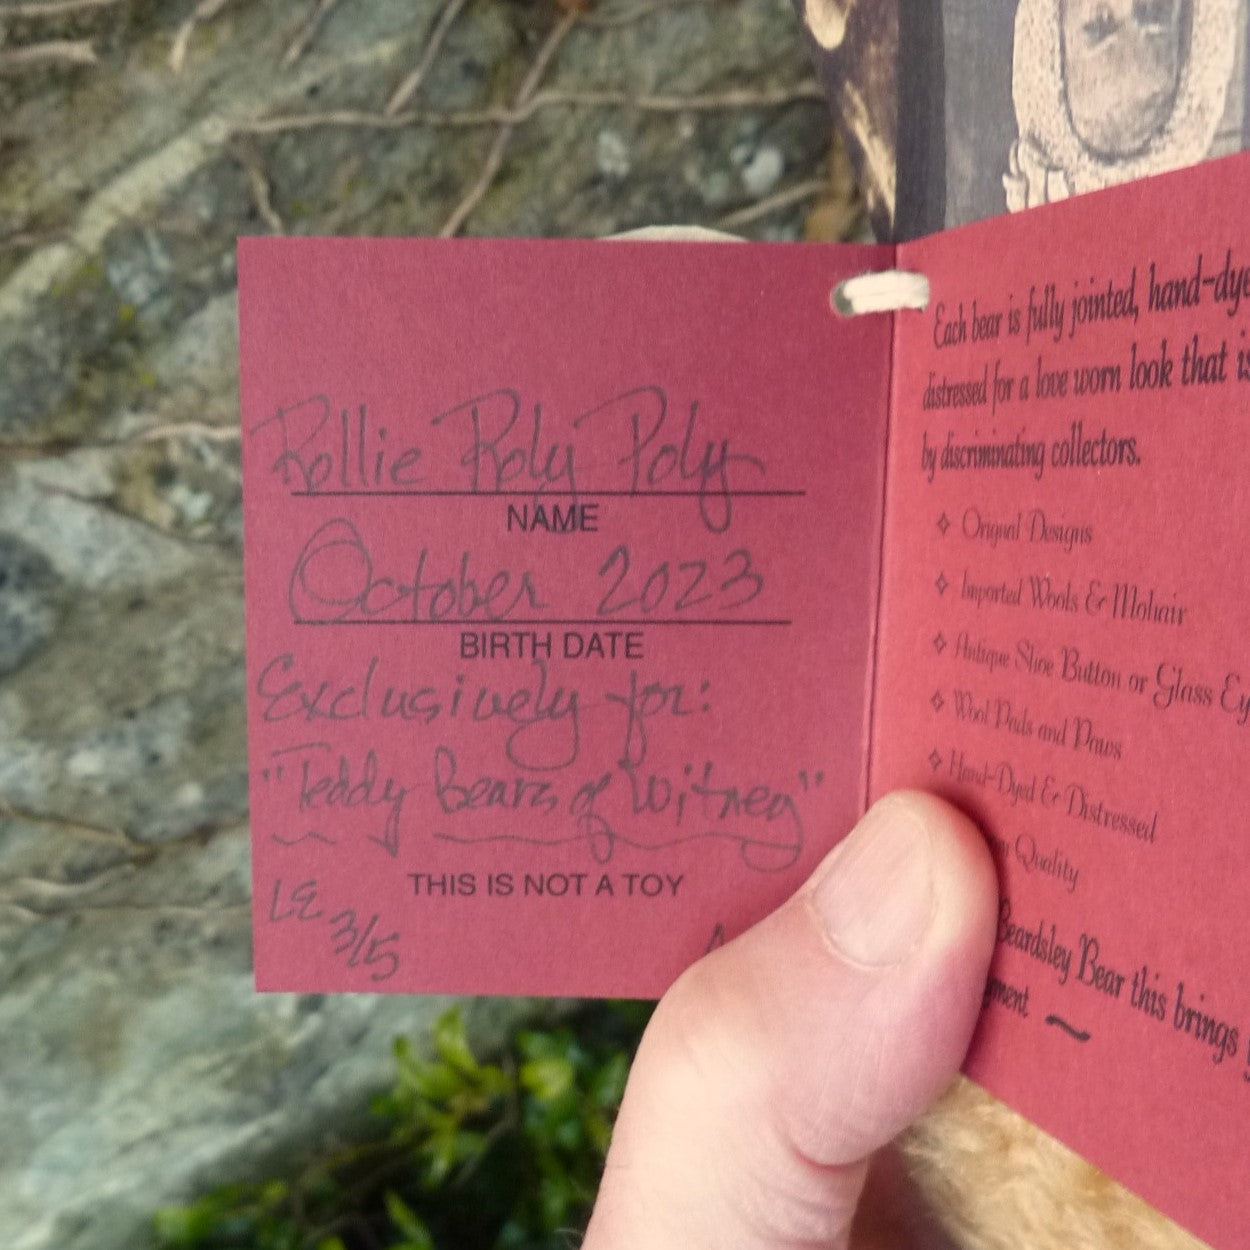 Rollie Roly Poly
NAME
October 2023
BIRTH DATE
Exclusively for:
"Teddy Bears of Witney"
THIS IS NOT A TOY
LE
3/5
Each bear is fully jointed, hand-dye
distressed for a love worn look that is
by discriminating collectors.
Original Designs
Imported Wools & Mohair
Antique Shoe Button or Glass Ey
Wool Pads and Paws
Hand-Dyed & Distressed
Quality
Beardsley Bear this brings